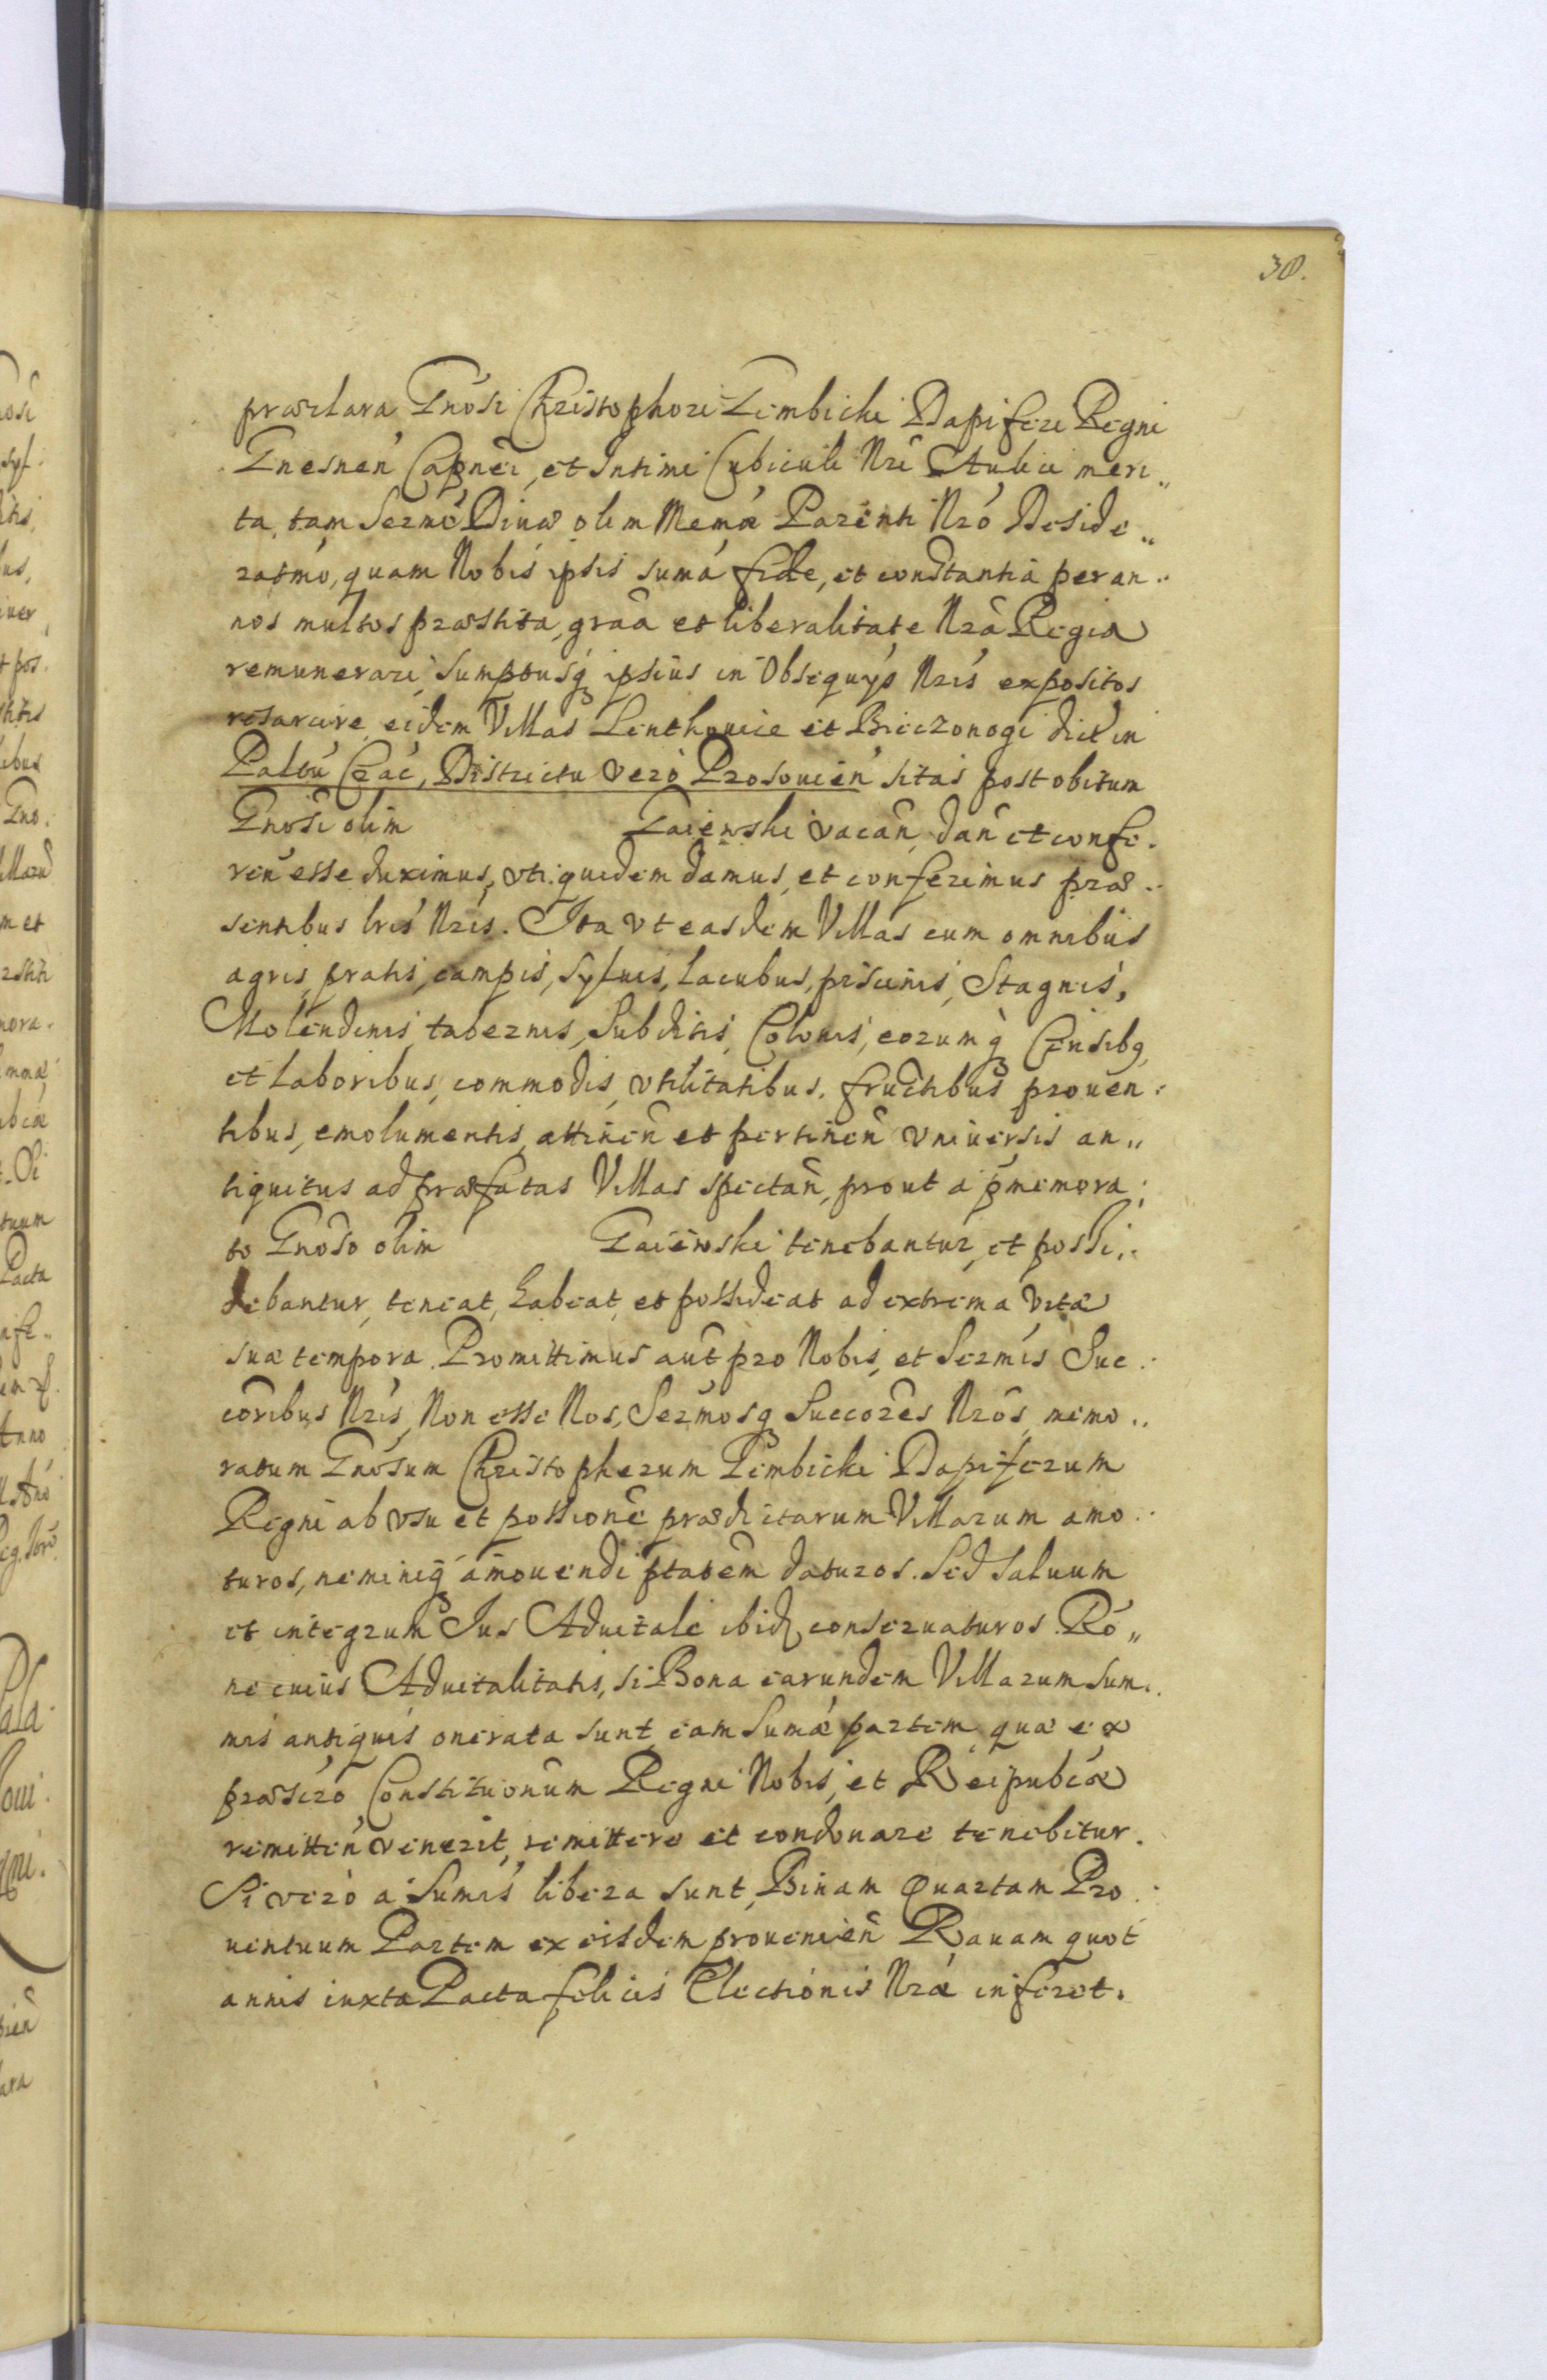 38.
præclara Gnosi Christophori Gembicki Dapiferi Regni
Gnesnen Capnei, et Intimi Cubiculi Nri Aulici meri„
ta, tam Sermo Divæ olim Memæ Parenti Nro Deside„
ratmo, quam Nobis ipsis sumá fide, et constantiá per an„
nos multos præstita, graã et liberalitate Nrâ Regia
remunerari, Sumptusq ipsius in Obsequÿs Nris expositos
resarcire, eidem Villas Lenthowice et Biczonogi dict in
Paltu Crac, Districtu vero Prosovien sitas post obitum
Gnosi olim Gaiewski vacañ, dañ et confe„
reñ esse duximus, uti quidem damus, et conferimus præ„
sentibus lris Nris. Ita ut easdem Villas cum omnibus
agris, pratis, campis, sylvis, lacubus, piscinis, Stagnis,
Molendinis, tabernis, Subditis, Colonis, eorumq Censibq,
et Laboribus, commodis, utilitatibus, fructibus proven„
tibus, emolumentis, attineñ et pertineñ universis an„
tiquitus ad præfatas Villas spectañ, prout á pmemora„
to Gnoso olim Gaiewski tenebantur, et possi„
debantur, teneat, habeat, et possideat ad extrema vitæ
suæ tempora. Promittimus aut pro Nobis, et Sermis Suc„
coribus Nris, Non esse Nos, Sermosq Succores Nros, memo„
ratum Gnosum Christopherum Gembicki Dapiferum
Regni ab usu et possione prædictarum Villarum amo„
turos, neminiq ámovendi ptatem daturos. Sed salvum
et integrum Jus Advitale ibid conservaturos. Ró„
ne cuius Advitalitatis, si Bona earundem Villarum sum„
mis antiquis onerata sunt, eam Sumæ partem, quæ ex
præscro Constituonum Regni Nobis, et Reipubcæ
remitteñ venerit, remittere et condonare tenebitur.
Si veró á Sumis libera sunt, Binam Quartam Pro„
ventuum Partem ex eisdem provenieñ Ravam quot
annis iuxta Pacta felicis Electionis Nræ inferet.